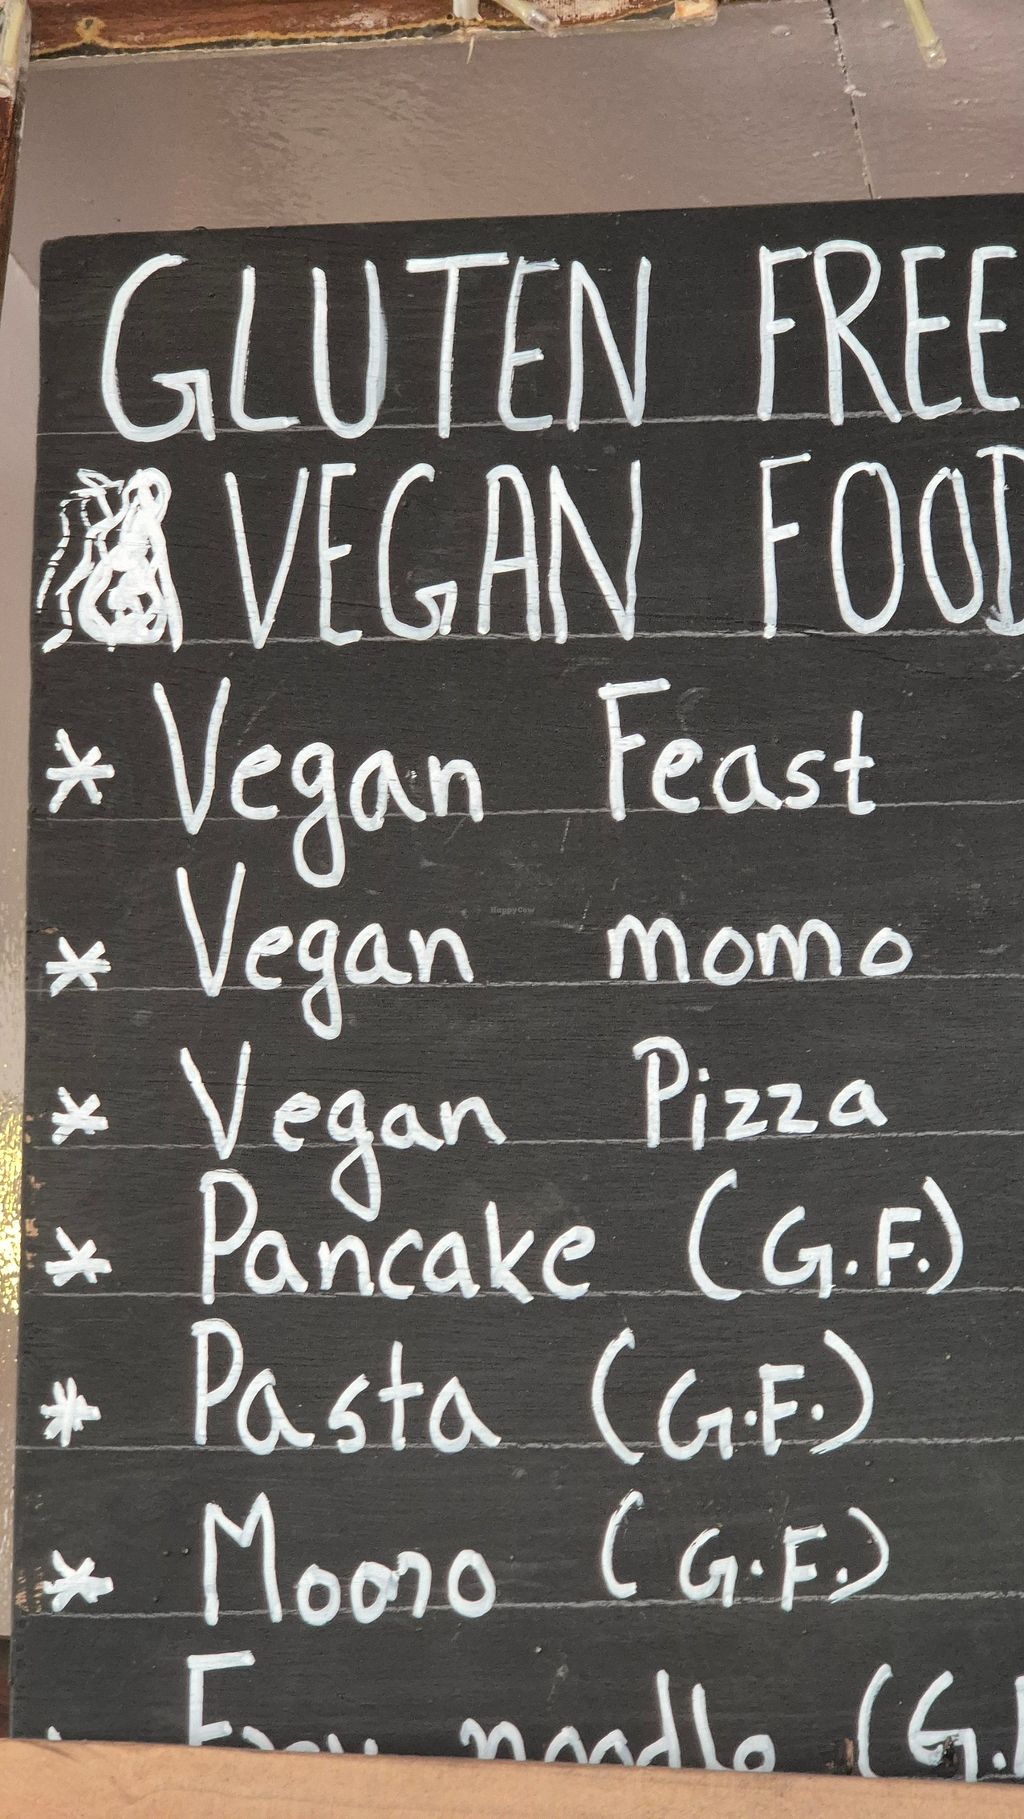 GLUTEN FREE
VEGAN FOOD
* Vegan Feast
* Vegan momo
* Vegan Pizza
* Pancake (G.F.)
* Pasta (G.F.)
* Mooro (G.F.)
noodle (G.
HappyCow